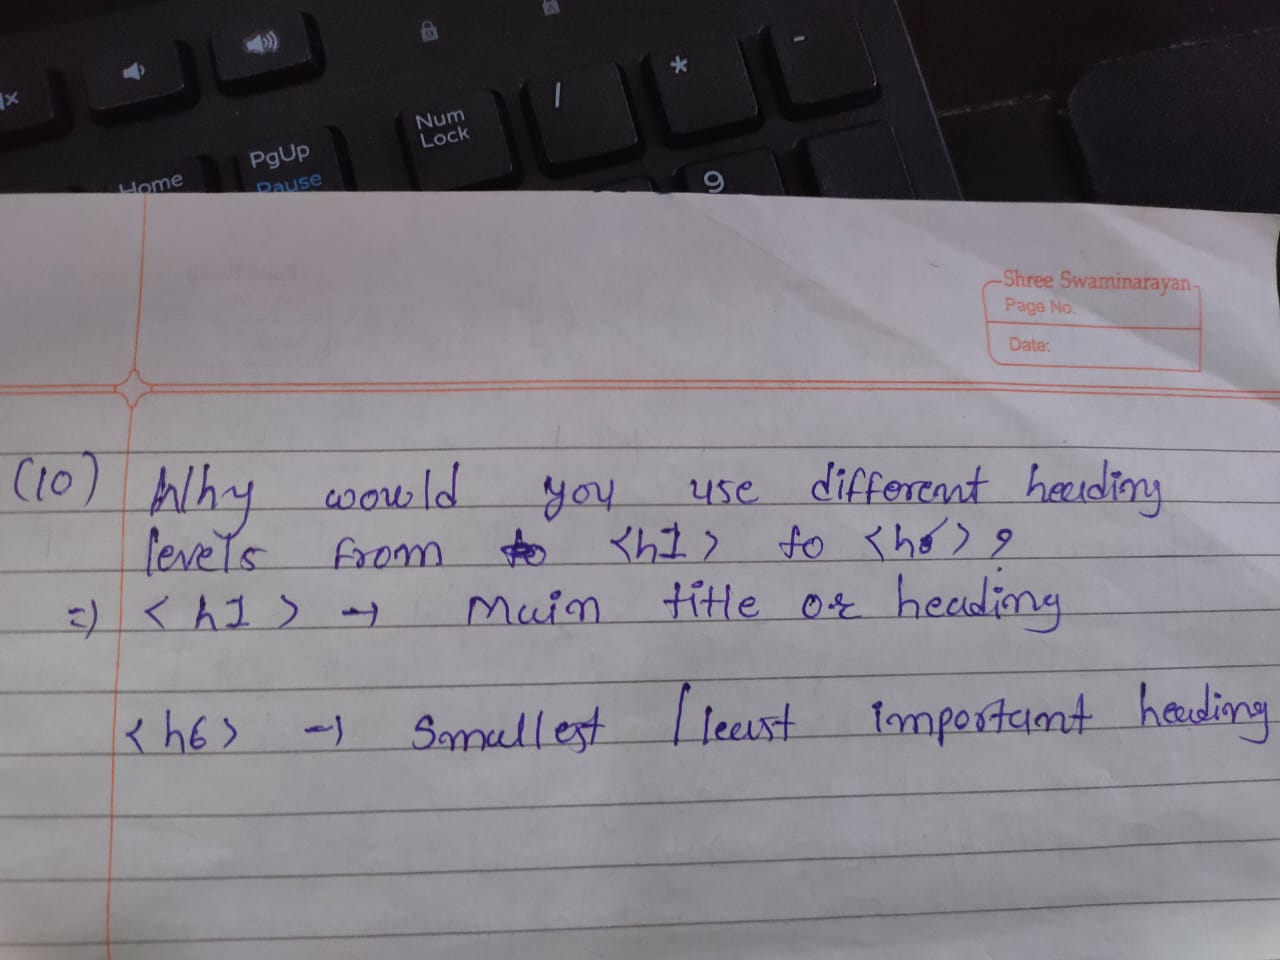 Num
Lock
/
*
-
Home
PgUp
Pause
9
Shree Swaminarayan
Page No.
Date:
(10) Why would you use different heading
levels from <h1> to <h6>?
=) <h1> → Main title or heading
<h6> → Smallest / least important heading